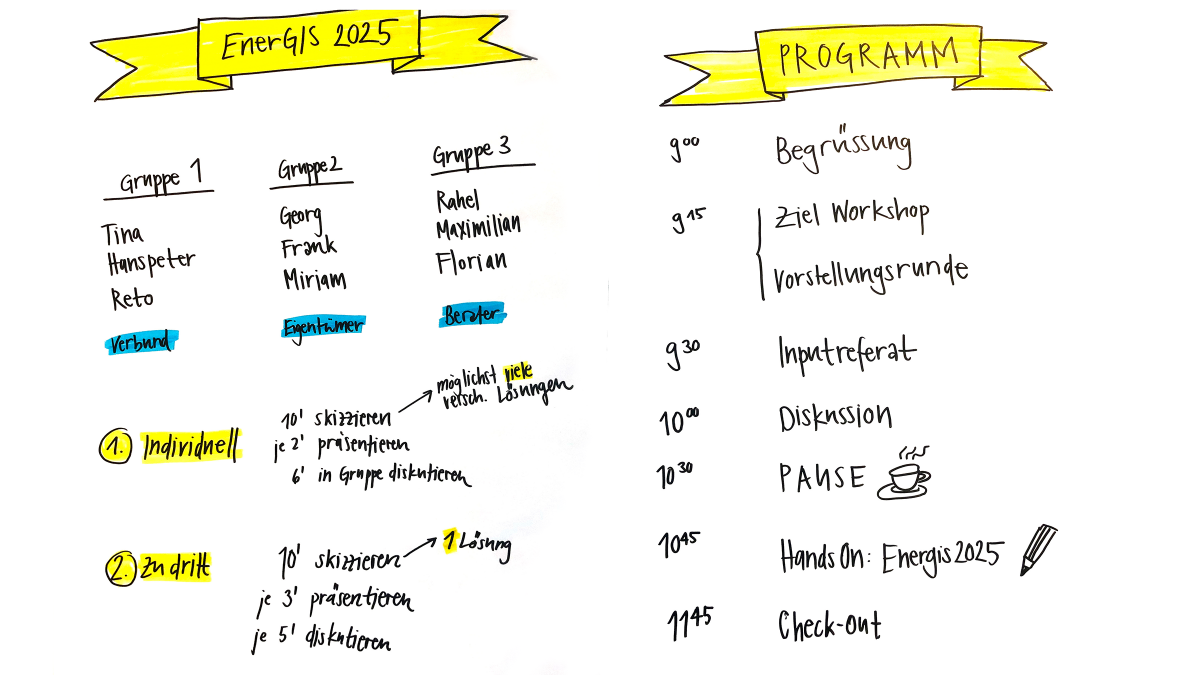 EnerGIS 2025
Gruppe 1
Tina
Hanspeter
Reto
Verbund
Gruppe 2
Georg
Frank
Miriam
Eigentümer
Gruppe 3
Rahel
Maximilian
Florian
Berater
1. Individuell
10' skizzieren → möglichst viele
versch. Lösungen
je 2' präsentieren
6' in Gruppe diskutieren
2. Zu dritt
10' skizzieren → 1 Lösung
je 3' präsentieren
je 5' diskutieren
PROGRAMM
9⁰⁰ Begrüssung
9¹⁵ Ziel Workshop
Vorstellungsrunde
9³⁰ Inputreferat
10⁰⁰ Diskussion
10³⁰ PAUSE
10⁴⁵ Hands On: Energis 2025
11⁴⁵ Check-out